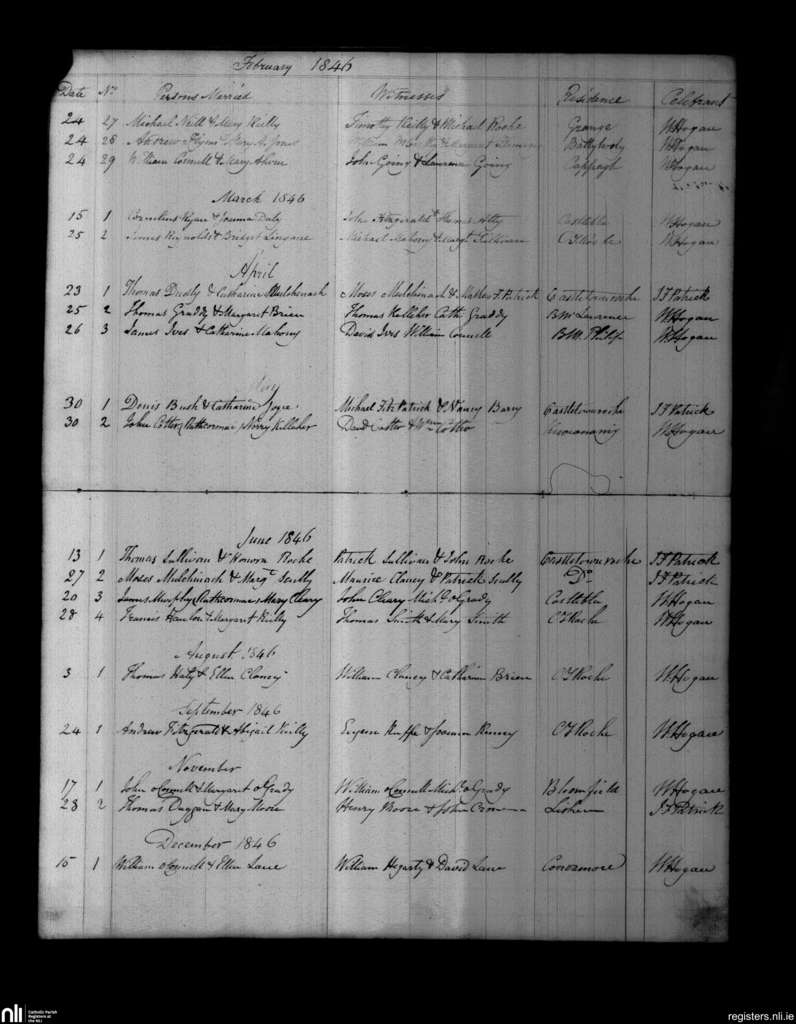 February 1846
Date No. Persons Married Witnesses Residence Celebrant
24 27 Michael Neill & Mary Reilly Timothy Reilly & Michael Roche Grange W Hogan
24 28 Andrew Flynn & Mary William & Margaret W Hogan
24 29 William Connell & Mary Ahern John Going & Laurence Going W Hogan
March 1846
15 1 Cornelius Ryan & Daly John Fitzgerald Thomas W Hogan
25 2 James Reynolds & Bridget Michael Mahony & C T Roche W Hogan
April
23 1 Thomas Duely & Catharine Mulchinach Moses Mulchinach & F. Patrick Castletownroche J F Patrick
25 2 Thomas Graddy & Margaret Brien Thomas Kelleher Cath. Graddy W Hogan
26 3 James Ives & Catharine Mahony David Ives William Connell W Hogan
May
30 1 Denis Bush & Catharine Joyce Michael FitzPatrick & Nancy Barry Castletownroche J F Patrick
30 2 John Cotter (Rathcormac) Norry Kelleher David Cotter & Wm Cotter W Hogan
June 1846
13 1 Thomas Sullivan & Honora Roche Patrick Sullivan & John Roche Castletownroche J F Patrick
27 2 Moses Mulchinach & Margt. Scully Maurice Clancy & Patrick Scully Do J F Patrick
20 3 James Murphy (Rathcormac) Mary Cleary John Cleary Michl. O Grady W Hogan
28 4 Francis Hanlon & Margaret Reilly Thomas Smith & Mary Smith C T Roche W Hogan
August 1846
3 1 Thomas & Ellen Clancy William Clancy & Catharine Brien C T Roche W Hogan
September 1846
24 1 Andrew Fitzgerald & Abigail Reilly Eugene & Joanna C T Roche W Hogan
November
17 1 John O Connell & Margaret O Grady William O Connell Michl. O Grady Bloomfield W Hogan
28 2 Thomas Duggan & Mary Moore Henry Moore & John J F Patrick
December 1846
15 1 William O Connell & Ellen Lane William Hegarty & David Lane W Hogan
nli Catholic Parish
Registers at
the NLI
registers.nli.ie